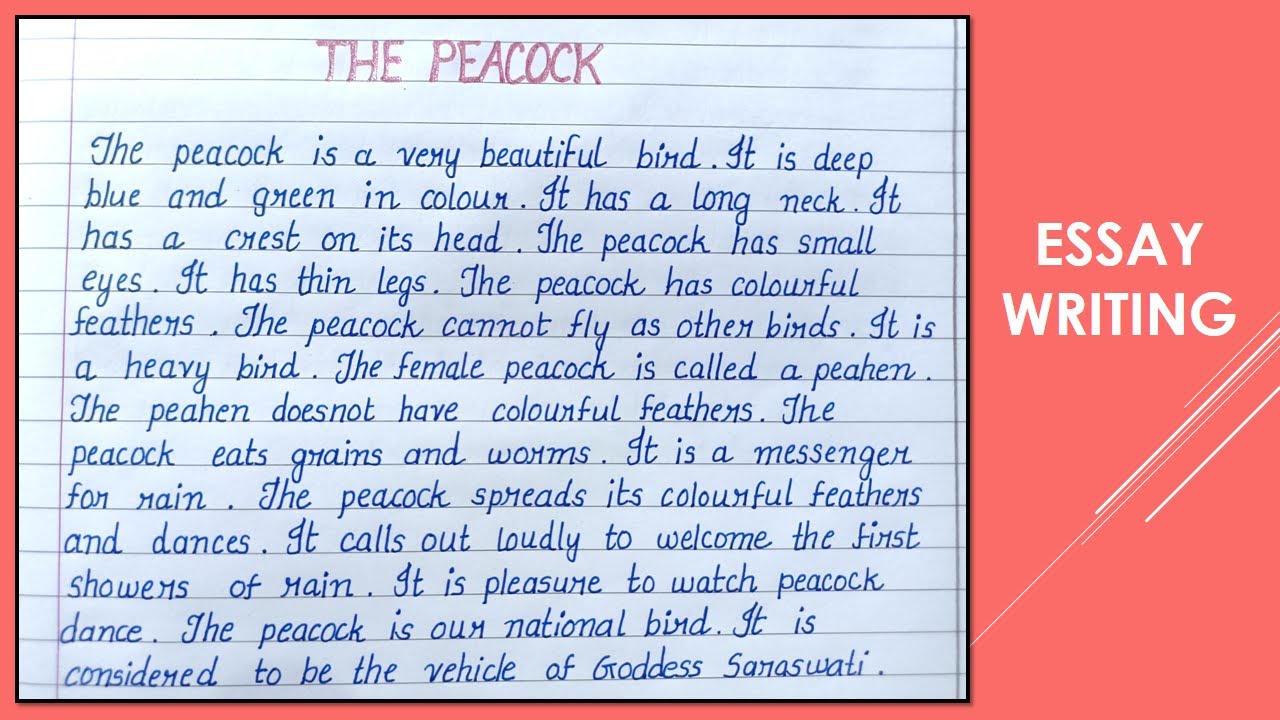 THE PEACOCK
The peacock is a very beautiful bird. It is deep
blue and green in colour. It has a long neck. It
has a crest on its head. The peacock has small
eyes. It has thin legs. The peacock has colourful
feathers. The peacock cannot fly as other birds. It is
a heavy bird. The female peacock is called a peahen.
The peahen doesnot have colourful feathers. The
peacock eats grains and worms. It is a messenger
for rain. The peacock spreads its colourful feathers
and dances. It calls out loudly to welcome the first
showers of rain. It is pleasure to watch peacock
dance. The peacock is our national bird. It is
considered to be the vehicle of Goddess Saraswati.
ESSAY
WRITING